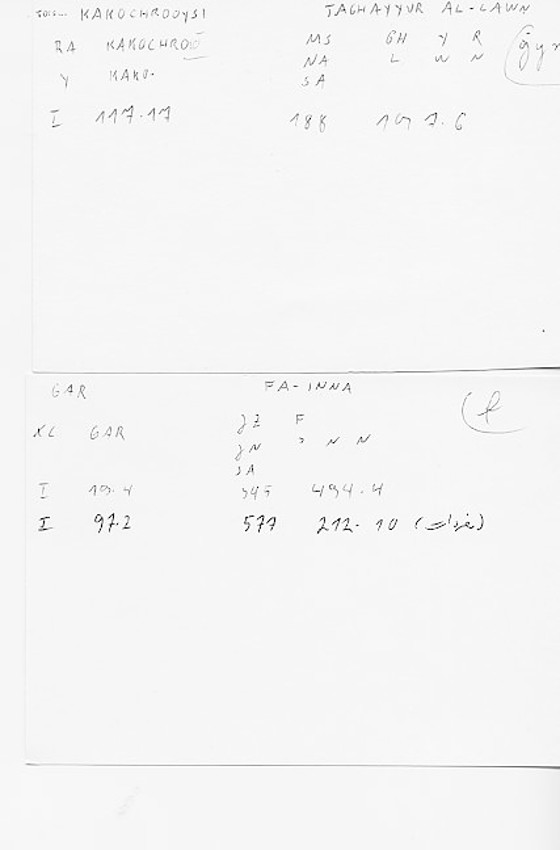 KAKOCHROOYSI TAGHAYYUR AL-LAWN
RA KAKOCHROO MS GH Y R
NA L W N
Y KAKO. SA
I 117.17 188 7.6
GAR FA-INNA
XL GAR JZ F
JN ' N N
SA
I 19.4 345 494.4
I 97.2 577 212.10